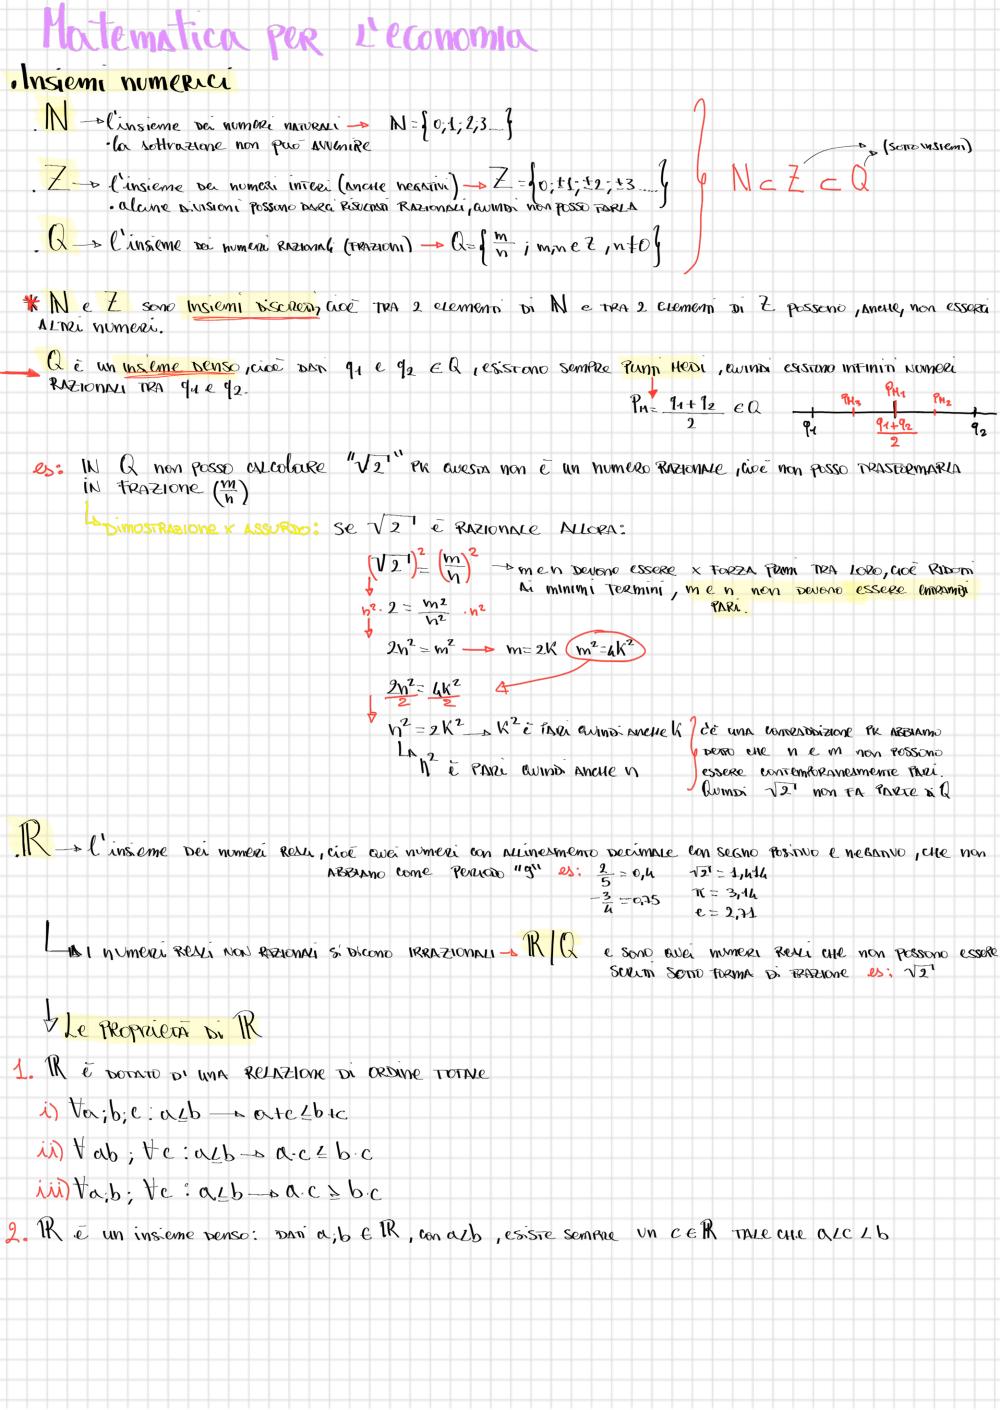 Matematica per l'economia
. Insiemi numerici
. ℕ → l'insieme dei numeri naturali → ℕ = {0;1;2;3...}
• la sottrazione non può avvenire
. Z → l'insieme dei numeri interi (anche negativi) → Z = {0;±1;±2;±3....}
• alcune divisioni possono darci risultati razionali, quindi non posso farla
. Q → l'insieme dei numeri razionali (frazioni) → Q = {m/n ; m,n ∈ Z, n≠0}
N ⊂ Z ⊂ Q (sottoinsiemi)
* ℕ e Z sono insiemi discreti, cioè tra 2 elementi di ℕ e tra 2 elementi di Z possono, anche, non esserci
altri numeri.
→ Q è un insieme denso, cioè dati q1 e q2 ∈ Q, esistono sempre punti medi, quindi esistono infiniti numeri
razionali tra q1 e q2.
PM = (q1+q2)/2 ∈ Q
PM3 PM1 PM2
q1 (q1+q2)/2 q2
es: in Q non posso calcolare "√2" pk questa non è un numero razionale, cioè non posso trasformarla
in frazione (m/n)
↳ Dimostrazione x assurdo: se √2 è razionale allora:
(√2)² = (m/n)² → m e n devono essere x forza primi tra loro, cioè ridotti
ai minimi termini, m e n non devono essere entrambi
pari.
n² · 2 = m²/n² · n²
2n² = m² → m = 2k m² = 4k²
2n²/2 = 4k²/2
n² = 2k² → k² è pari quindi anche k
↳ n² è pari quindi anche n
c'è una contraddizione pk abbiamo
detto che n e m non possono
essere contemporaneamente pari.
Quindi √2 non fa parte di Q
. ℝ → l'insieme dei numeri reali, cioè quei numeri con allineamento decimale con segno positivo e negativo, che non
abbiano come periodo "9" es: 2/5 = 0,4 √2 = 1,414
-3/4 = 0,75 π = 3,14
e = 2,71
↳ I numeri reali non razionali si dicono irrazionali → ℝ|Q e sono quei numeri reali che non possono essere
scritti sotto forma di frazione es: √2
↓ Le proprietà di ℝ
1. ℝ è dotato d'una relazione di ordine totale
i) ∀a;b;c : a≤b → a+c≤b+c
ii) ∀ab ; ∀c : a≤b → a·c ≤ b·c
iii) ∀a;b; ∀c : a≤b → a·c ≥ b·c
2. ℝ è un insieme denso: dati a;b ∈ ℝ, con a<b, esiste sempre un c ∈ ℝ tale che a<c<b